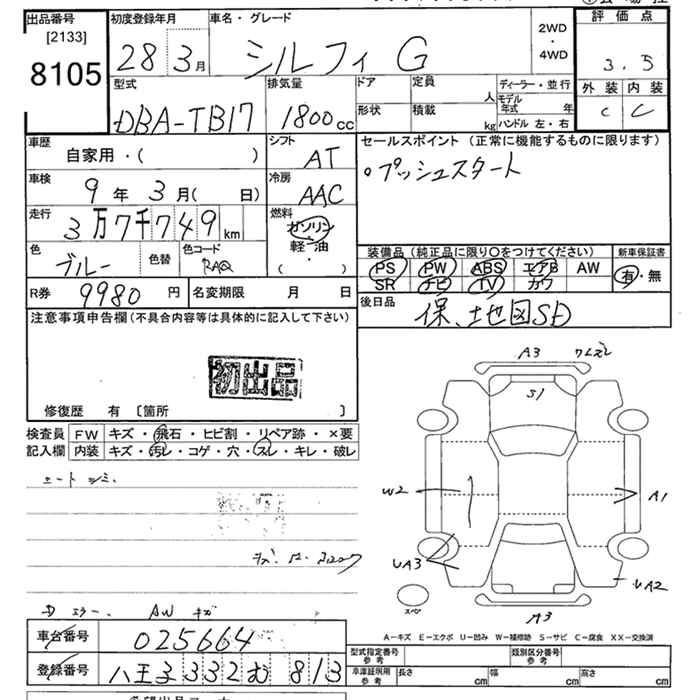 出品番号
[2133]
8105
初度登録年月
28 3月
車名・グレード
シルフィ G
2WD
・
4WD
評価点
3.5
外装 内装
C C
型式
DBA-TB17
排気量
1800cc
ドア
定員
人
形状
積載
kg
ディーラー・並行
モデル年式 年
ハンドル 左・右
車歴
自家用・( )
シフト
AT
セールスポイント (正常に機能するものに限ります)
・プッシュスタート
車検
9年 3月( 日)
冷房
AAC
走行
3万7千749km
燃料
ガソリン
軽・油
( )
色
ブルー
色替
色コード
RAQ
装備品 (純正品に限り〇をつけてください)
PS PW ABS エアB AW
SR ナビ TV カワ
新車保証書
有・無
R券
9980円
名変期限 月 日
後日品
保、地図SD
注意事項申告欄(不具合内容等は具体的に記入して下さい)
初出品
修復歴 有 〔箇所 〕
検査員
記入欄
FW キズ・飛石・ヒビ割・リペア跡・×要
内装 キズ・汚レ・コゲ・穴・スレ・キレ・破レ
シートシミ
A3
S1
W2
A1
UA3
UA2
スペア
A3
A-キズ E-エクボ U-凹み W-補修跡 S-サビ C-腐食 XX-交換済
AW キズ
車台番号
025664
登録番号
八王子 332 む 813
型式指定番号
参考
類別区分番号
参考
車庫証明用
参考
長さ
幅
高さ
cm